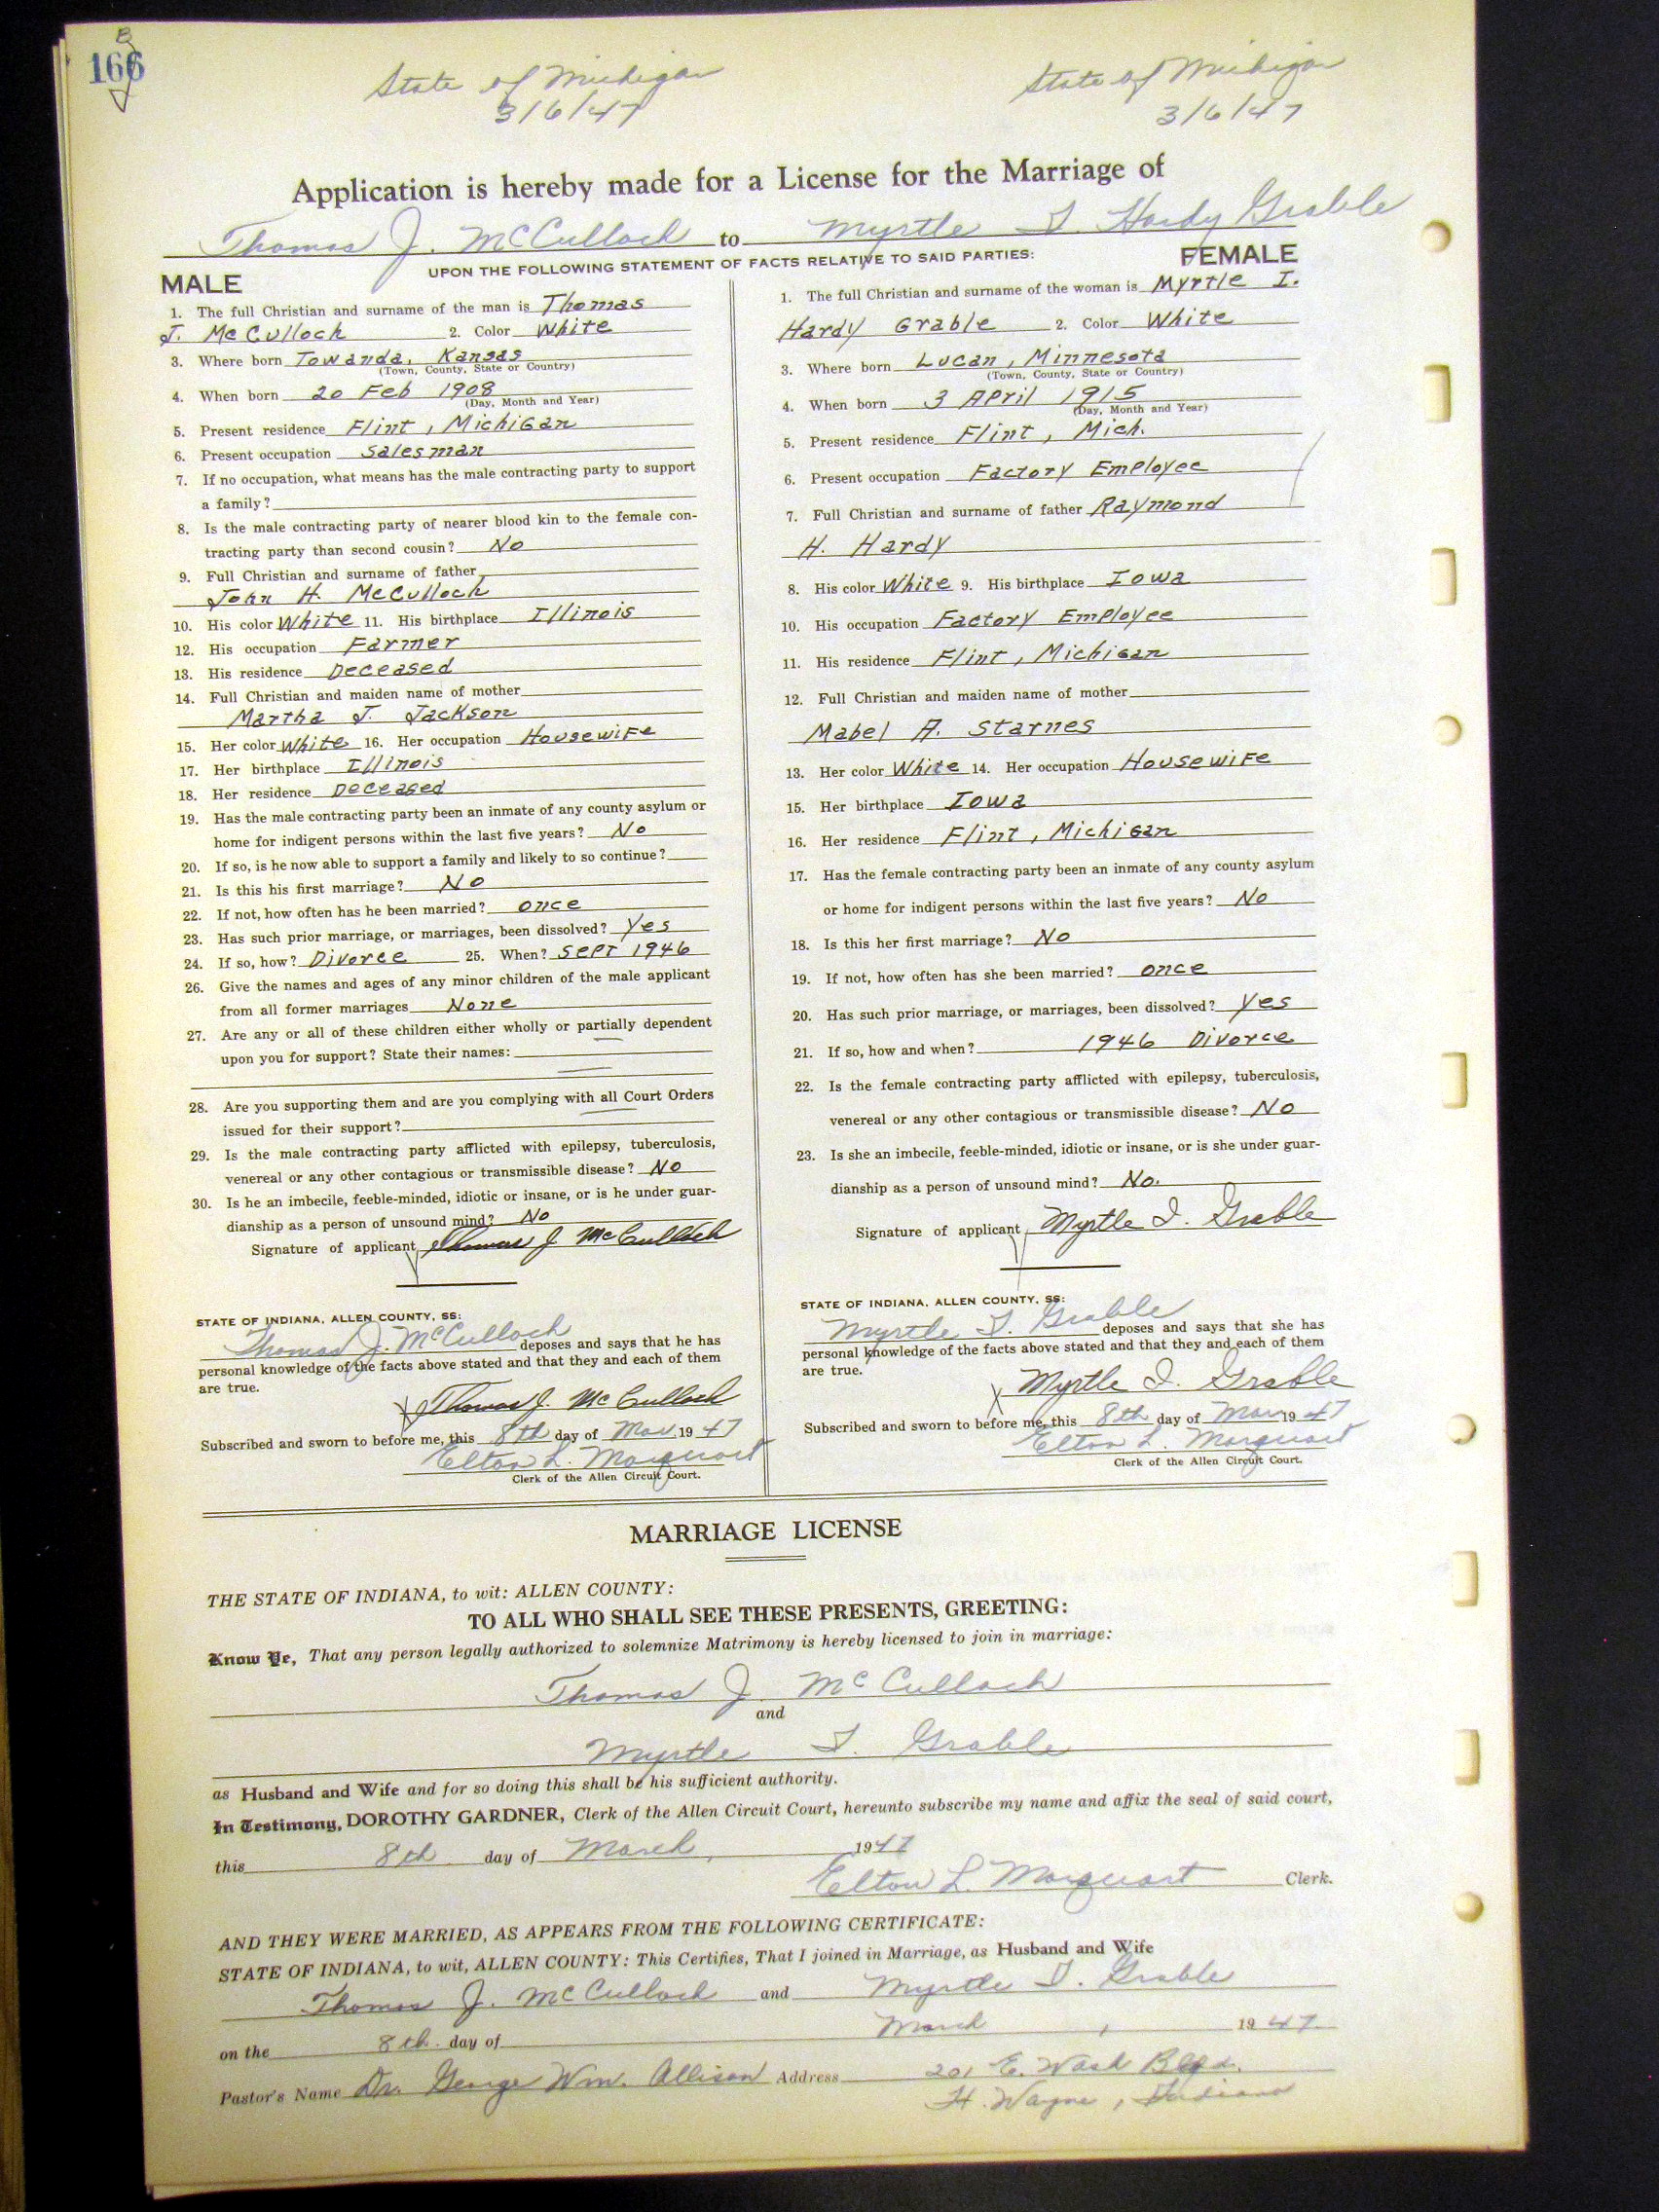 166
B
State of Michigan
3/6/47
State of Michigan
3/6/47
Application is hereby made for a License for the Marriage of
Thomas J. McCulloch to Myrtle I. Hardy Grable
UPON THE FOLLOWING STATEMENT OF FACTS RELATIVE TO SAID PARTIES:
MALE
1. The full Christian and surname of the man is Thomas
J. McCulloch 2. Color White
3. Where born Towanda, Kansas
(Town, County, State or Country)
4. When born 20 Feb 1908
(Day, Month and Year)
5. Present residence Flint, Michigan
6. Present occupation Salesman
7. If no occupation, what means has the male contracting party to support
a family?
8. Is the male contracting party of nearer blood kin to the female con-
tracting party than second cousin? No
9. Full Christian and surname of father
John H. McCulloch
10. His color White 11. His birthplace Illinois
12. His occupation Farmer
13. His residence Deceased
14. Full Christian and maiden name of mother
Martha J. Jackson
15. Her color White 16. Her occupation Housewife
17. Her birthplace Illinois
18. Her residence Deceased
19. Has the male contracting party been an inmate of any county asylum or
home for indigent persons within the last five years? No
20. If so, is he now able to support a family and likely to so continue?
21. Is this his first marriage? No
22. If not, how often has he been married? once
23. Has such prior marriage, or marriages, been dissolved? Yes
24. If so, how? Divorce 25. When? Sept 1946
26. Give the names and ages of any minor children of the male applicant
from all former marriages None
27. Are any or all of these children either wholly or partially dependent
upon you for support? State their names:
28. Are you supporting them and are you complying with all Court Orders
issued for their support?
29. Is the male contracting party afflicted with epilepsy, tuberculosis,
venereal or any other contagious or transmissible disease? No
30. Is he an imbecile, feeble-minded, idiotic or insane, or is he under guar-
dianship as a person of unsound mind? No
Signature of applicant Thomas J McCulloch
STATE OF INDIANA, ALLEN COUNTY, SS:
Thomas J. McCulloch deposes and says that he has
personal knowledge of the facts above stated and that they and each of them
are true.
Thomas J. McCulloch
Subscribed and sworn to before me, this 8th day of Mar 1947
Elton L. Marquart
Clerk of the Allen Circuit Court.
FEMALE
1. The full Christian and surname of the woman is Myrtle I.
Hardy Grable 2. Color White
3. Where born Lucan, Minnesota
(Town, County, State or Country)
4. When born 3 April 1915
(Day, Month and Year)
5. Present residence Flint, Mich.
6. Present occupation Factory Employee
7. Full Christian and surname of father Raymond
H. Hardy
8. His color White 9. His birthplace Iowa
10. His occupation Factory Employee
11. His residence Flint, Michigan
12. Full Christian and maiden name of mother
Mabel A. Starnes
13. Her color White 14. Her occupation Housewife
15. Her birthplace Iowa
16. Her residence Flint, Michigan
17. Has the female contracting party been an inmate of any county asylum
or home for indigent persons within the last five years? No
18. Is this her first marriage? No
19. If not, how often has she been married? once
20. Has such prior marriage, or marriages, been dissolved? Yes
21. If so, how and when? 1946 Divorce
22. Is the female contracting party afflicted with epilepsy, tuberculosis,
venereal or any other contagious or transmissible disease? No
23. Is she an imbecile, feeble-minded, idiotic or insane, or is she under guar-
dianship as a person of unsound mind? No.
Signature of applicant Myrtle I. Grable
STATE OF INDIANA, ALLEN COUNTY, SS:
Myrtle I. Grable deposes and says that she has
personal knowledge of the facts above stated and that they and each of them
are true.
Myrtle I. Grable
Subscribed and sworn to before me, this 8th day of Mar 1947
Elton L. Marquart
Clerk of the Allen Circuit Court.
MARRIAGE LICENSE
THE STATE OF INDIANA, to wit: ALLEN COUNTY:
TO ALL WHO SHALL SEE THESE PRESENTS, GREETING:
Know Ye, That any person legally authorized to solemnize Matrimony is hereby licensed to join in marriage:
Thomas J. McCulloch
and
Myrtle I. Grable
as Husband and Wife and for so doing this shall be his sufficient authority.
In Testimony, DOROTHY GARDNER, Clerk of the Allen Circuit Court, hereunto subscribe my name and affix the seal of said court,
this 8th day of March, 1947
Elton L. Marquart Clerk.
AND THEY WERE MARRIED, AS APPEARS FROM THE FOLLOWING CERTIFICATE:
STATE OF INDIANA, to wit, ALLEN COUNTY: This Certifies, That I joined in Marriage, as Husband and Wife
Thomas J. McCulloch and Myrtle I. Grable
on the 8th day of March, 1947
Pastor's Name Dr. George Wm. Allison Address 201 E. Wash Blvd.
Ft. Wayne, Indiana